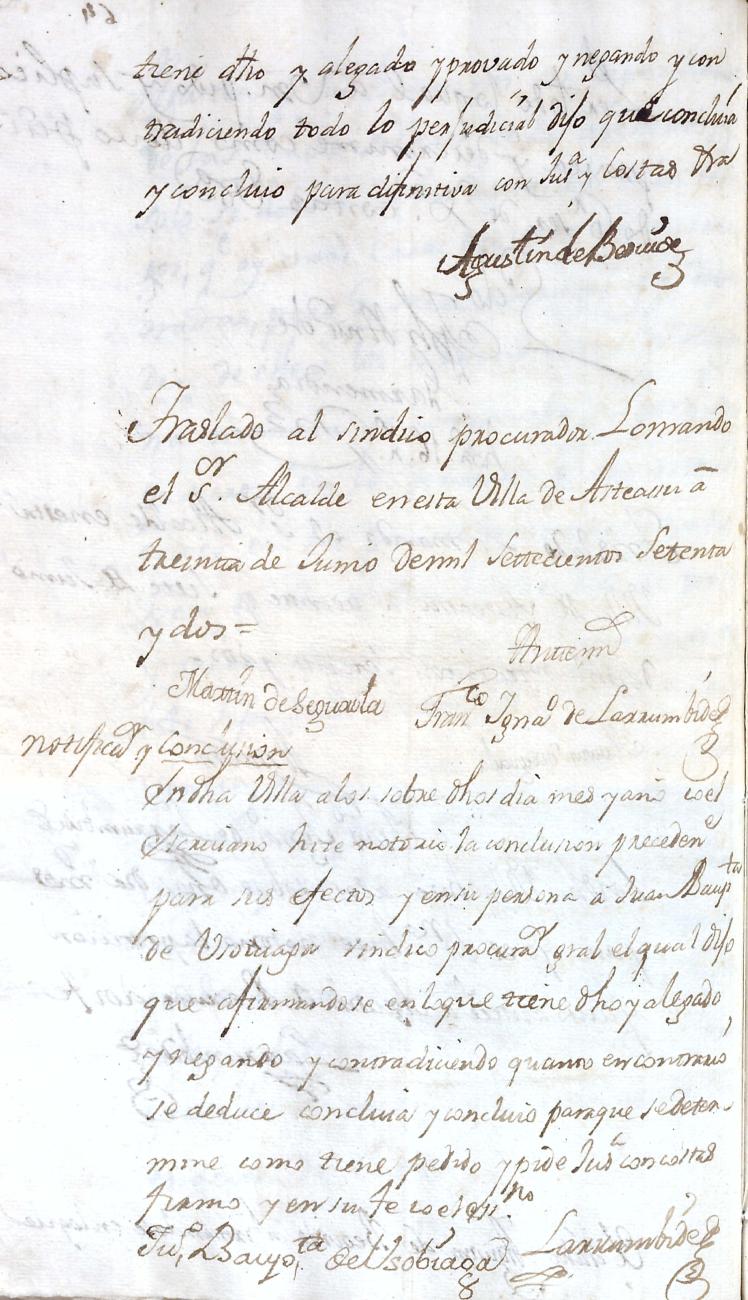 tiene dho y alegado y provado y negando y con
tradiciendo todo lo perjudicial dijo que concluia
y concluio para difinitiva con Jusª y costas &ra
Agustin de
Traslado al sindico procurador Lo mando
el Sr. Alcalde en esta Villa de Asteasu a
treinta de Junio de mil settecientos setenta
y dos =
Antemi
Martin de Segurola Franco Ignao de Larrumbide
notificaon y conclusion
En dha Villa a los sobre dhos dia mes y año io el
escriuano hize notorio la conclusion precedente
para sus efectos y en su persona a Juan Baupta
de Usobiaga sindico procuraor gral el qual dijo
que afirmandose en lo que tiene dho y alegado,
y negando y contradiciendo quanto en contrario
se deduce concluia y concluio para que se deter-
mine como tiene pedido y pide Jusª con costas
firmo y en su fe io el esno
Juº Baupta de Usobiaga Larrumbide